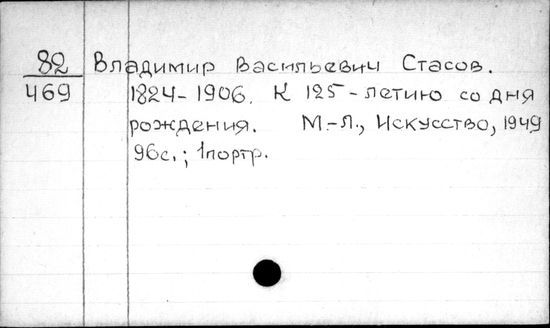 82 Владимир Васильевич Стасов.
469 1824-1906. К 125-летию со дня
рождения. М.-Л., Искусство, 1949
96с.; 1портр.